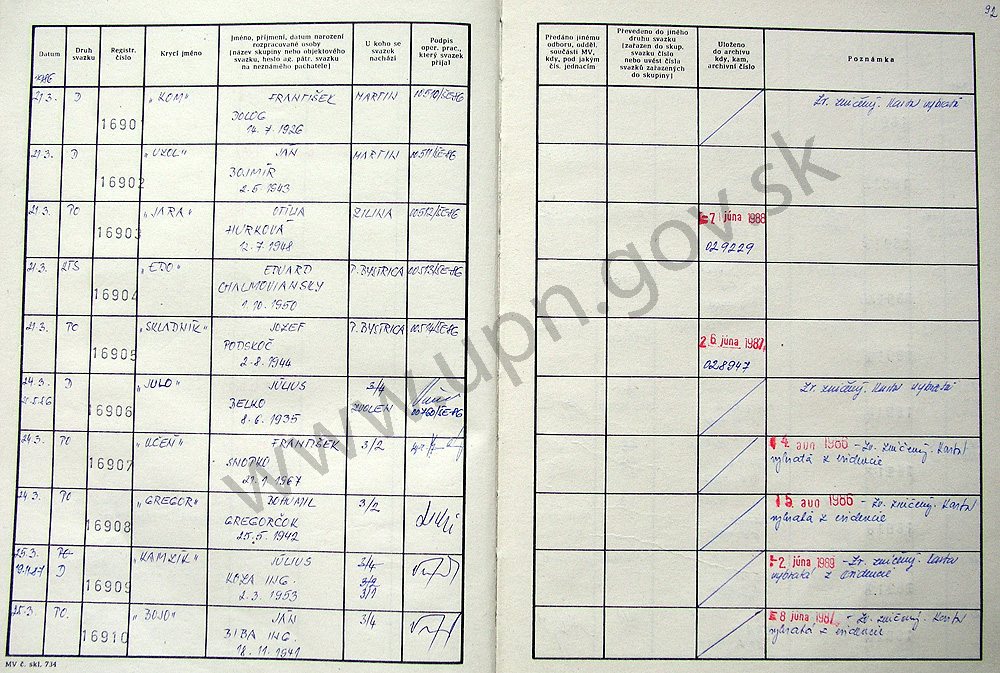 92
Datum
Druh svazku
Registr. číslo
Krycí jméno
Jméno, příjmení, datum narození
rozpracované osoby
(název skupiny nebo objektového
svazku, heslo ag. pátr. svazku
na neznámého pachatele)
U koho se
svazek
nachází
Podpis
oper. prac.,
který svazek
přijal
Předáno jinému
odboru, odděl.
součásti MV,
kdy, pod jakým
čís. jednacím
Převedeno do jiného
druhu svazku
(zařazen do skup.
svazku číslo
nebo uvést čísla
svazků zařazených
do skupiny)
Uloženo
do archivu
kdy, kam,
archivní číslo
Poznámka
1986
21.3. D 16901 „KOM" FRANTIŠEK MARTIN 00510/ŠE-86
DOLOG
14.7.1926
Zv. zničený. Karta vybratá
21.3. D 16902 „UZOL" JÁN MARTIN 00511/ŠE-86
BOJMÍR
2.5.1943
21.3. PO 16903 „JARA" OTÍLIA ŽILINA 00512/ŠE-86
HURKOVÁ
12.7.1948
7. júna 1988
029229
21.3. 16904 „EDO" EDUARD P. BYSTRICA 00513/ŠE-86
CHALMOVIANSKY
1.10.1950
21.3. PO 16905 „SKLADNÍK" JOZEF P. BYSTRICA 00514/ŠE-86
PODSKOČ
2.8.1944
2 6. júna 1987
028947
24.3. D 16906 „JULO" JÚLIUS 3/4
BELKO ZVOLEN 00760/ŠE-86
8.6.1935
Zv. zničený. Karta vybratá
24.3. PO 16907 FRANTIŠEK 3/2
SNOPKO
21.1.1967
4. aug 1986 - Zv. zničený. Karta
vybratá z evidencie
24.3. PO 16908 „GREGOR" BOHUMIL 3/2
GREGORČOK
25.5.1942
15. aug 1986 - Zv. zničený. Karta
vybratá z evidencie
25.3. 16909 „KAMZÍK" JÚLIUS 3/4
D KOZA ING. 3/1
2.3.1953
2. júna 1989 - Zv. zničený. Karta
vybratá z evidencie
25.3. PO. 16910 „BOJO" JÁN 3/4
BIBA ING.
18.11.1941
8 júna 1987 - Zv. zničený. Karta
vybratá z evidencie
MV č. skl. 734
www.upn.gov.sk